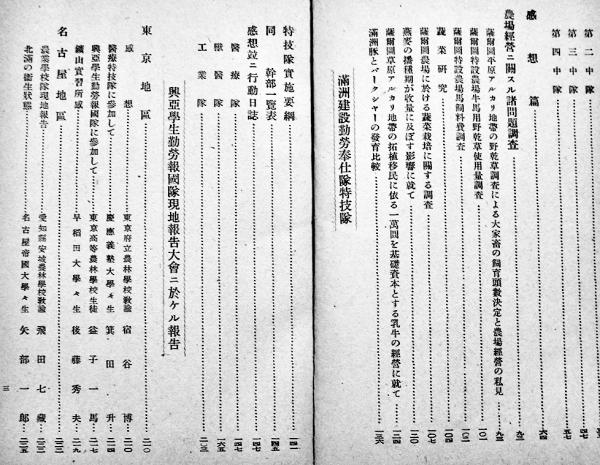 第二中隊
第三中隊
第四中隊
感想篇
農場經營ニ關スル諸問題調査
薩爾圖平原アルカリ地帶の野乾草調査による大家畜の飼育頭數決定と農場經營の私見
薩爾圖特設農場牛馬用野乾草使用量調査
薩爾圖特設農場馬飼料費調査
蔬菜研究
薩爾圖農場に於ける蔬菜栽培に關する調査
燕麥の播種期が收量に及ぼす影響に就て
薩爾圖草原アルカリ地帶の拓植移民に依る一萬圓を基礎資本とする乳牛の經營に就て
滿洲豚とバークシャーの發育比較
滿洲建設勤勞奉仕隊特技隊
特技隊實施要綱
同 幹部一覽表
感想竝ニ行動日誌
醫療隊
獸醫隊
工業隊
興亞學生勤勞報國隊現地報告大會ニ於ケル報告
東京地區 二一〇
感想 東京府立農林學校教諭 宿谷博 二一〇
醫療特技隊に參加して 慶應義塾大學々生 箕田升 二一四
興亞學生勤勞報國隊に參加して 東京高等農林學校生徒 益子一馬 二一七
鑛山實習所感 早稻田大學々生 後藤秀夫 二一九
名古屋地區
農業學校隊現地報告 愛知縣安城農林學校教諭 飛田七藏
北滿の衞生狀態 名古屋帝國大學々生 矢部一郎
三